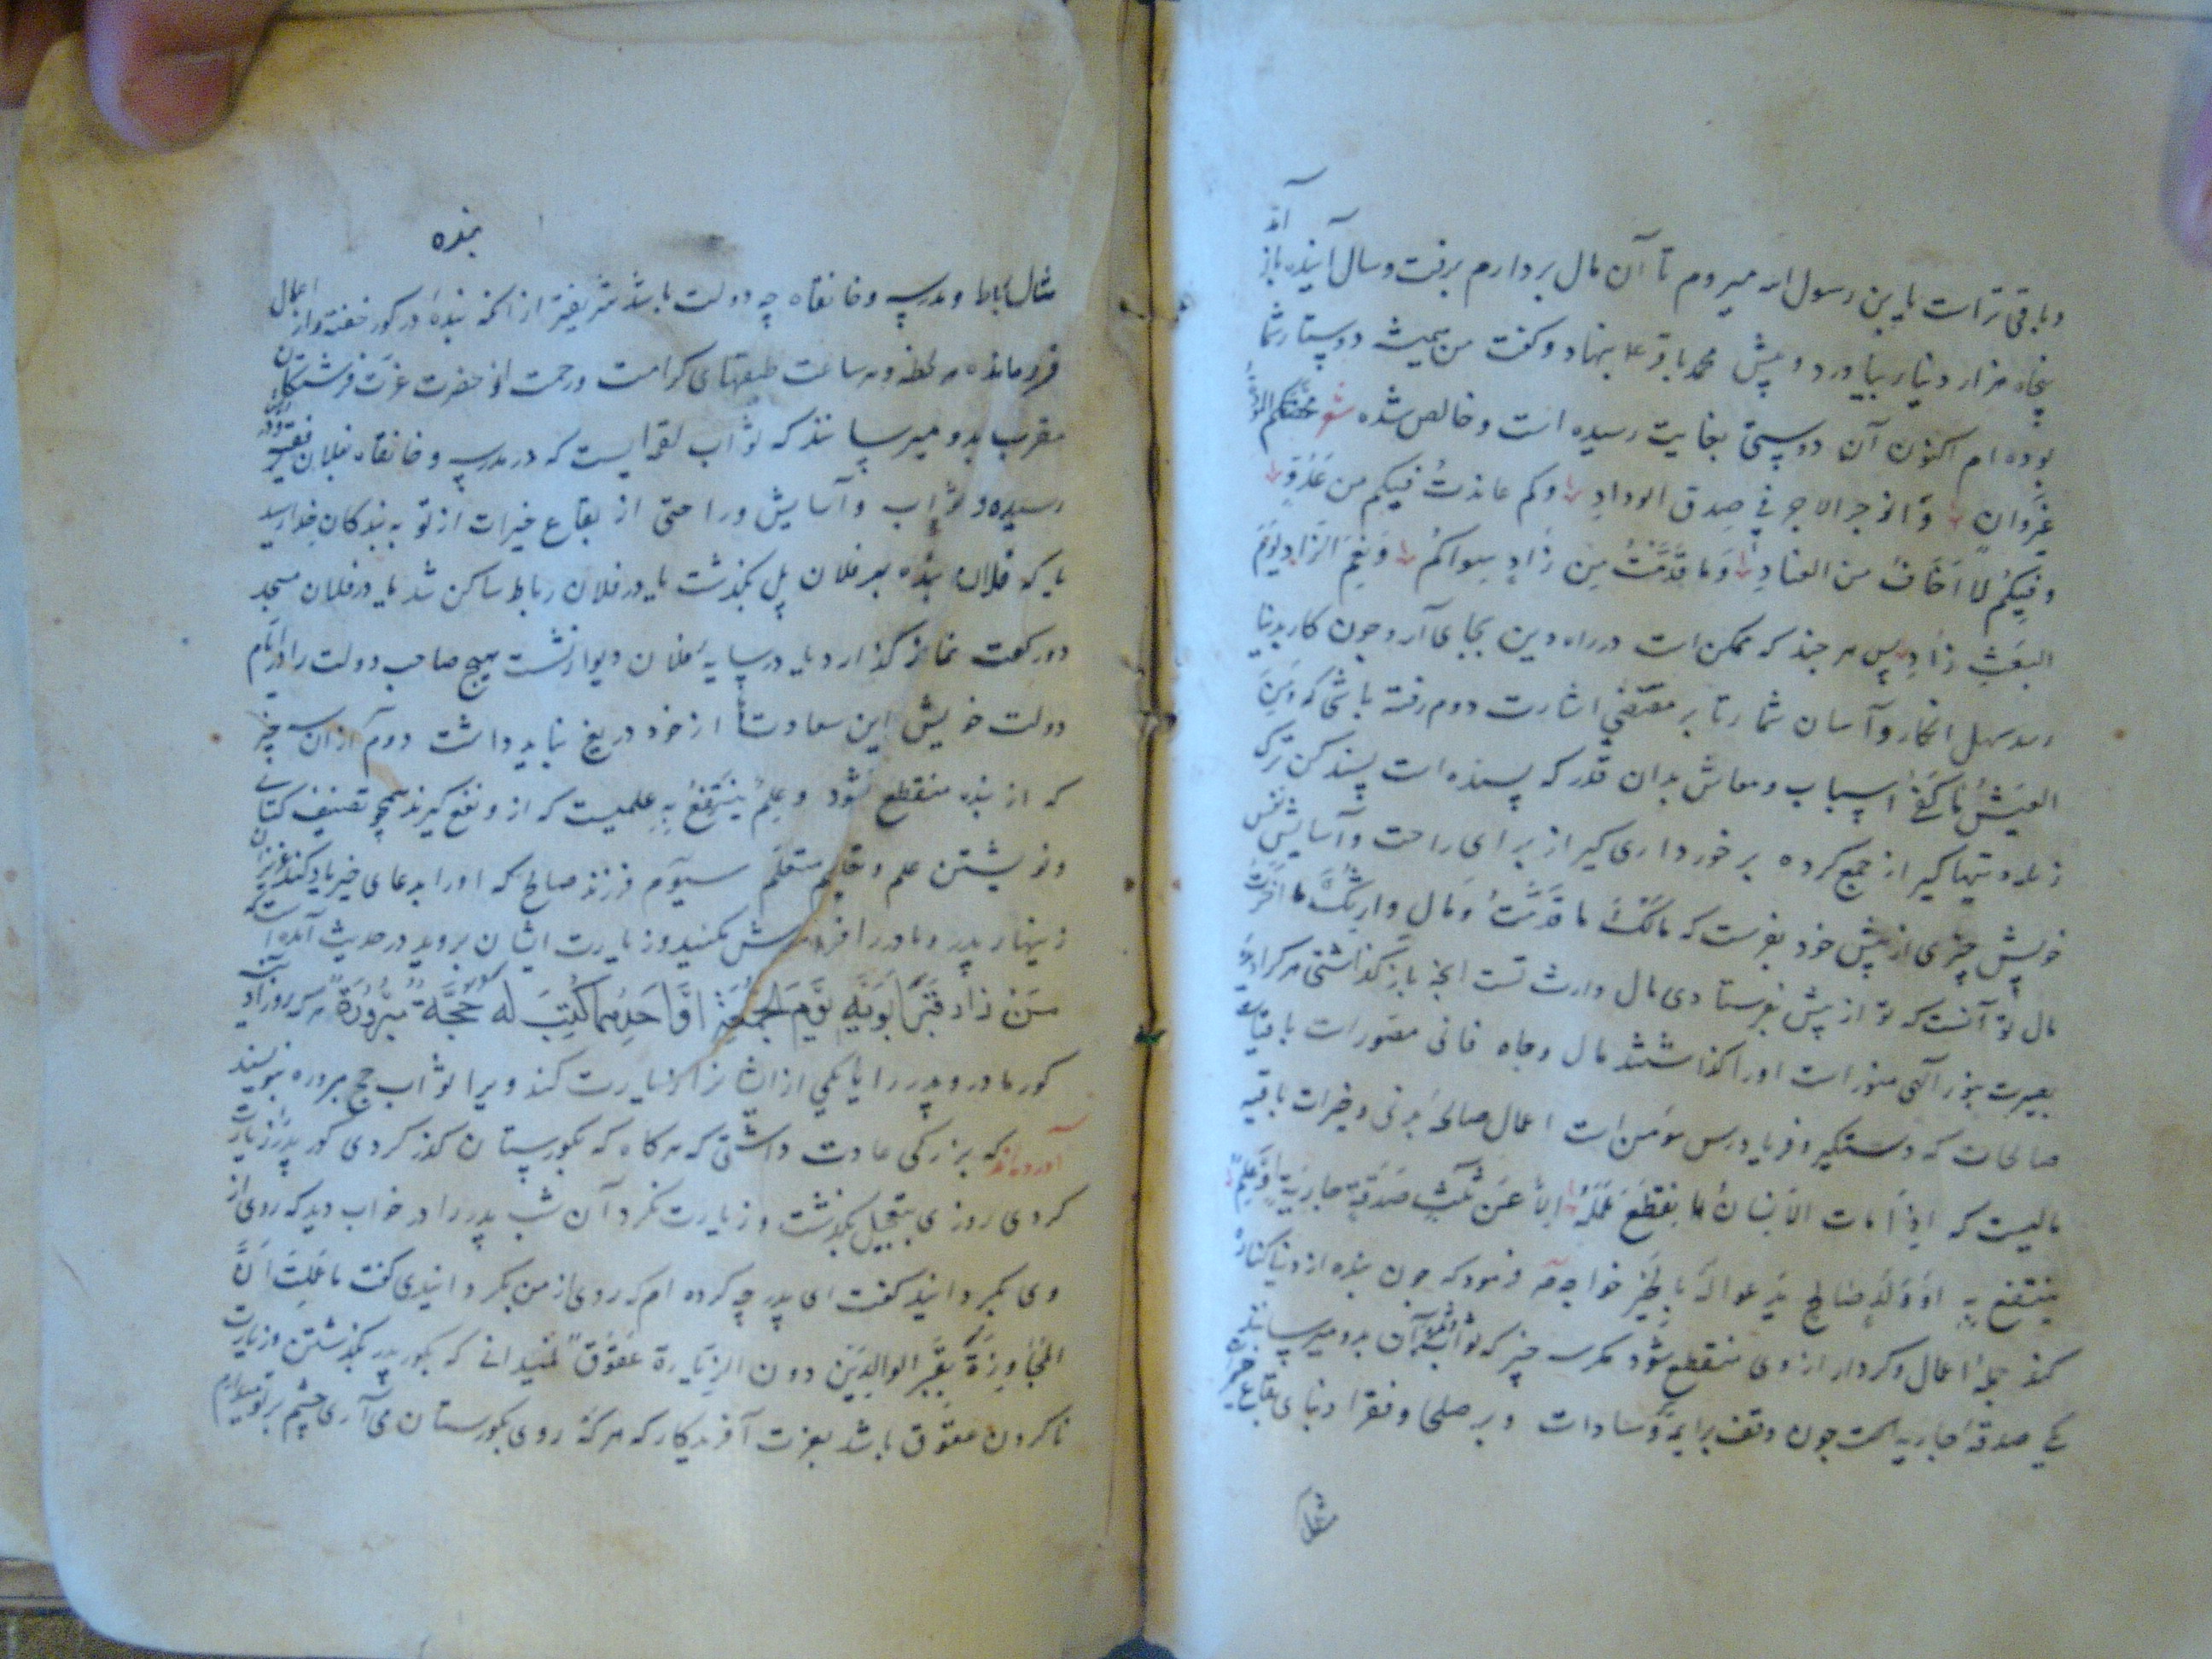 آمد
و باقی تراست یا بن رسول الله میروم تا آن مال بردارم برفت و سال آینده باز
پنجاه هزار دینار بیاورد و پیش محمد باقر ع بنهاد و کفت من همیشه دوستار شما
بوده ام اکنون آن دوستی بغایت رسیده است و خالص شده شعر محبتکم
فی صدق الوداد وکم عاندت فیکم من عدو
وفیکم لا اخاف من العناد وما قدمت من زاد سواکم ونعم الزاد یوم
البعث زاد پس هر چند که ممکن است در راه دین بجای آر و چون کار بدنیا
رسد سهل انکار و آسان شمار تا بر مقتضی اشارت دوم رفته باشی که
العیش ما کفی اسباب و معاش بدان قدر که پسنده است پسند کن ترک
کیر از جمع کرده برخورداری کیر از برای راحت و آسایش نفس
خویش چیزی از پیش خود بفرست که مالک ما قدمت و مال وارثک ما اخرت
مال تو آنست که تو از پیش بفرستادی مال وارث تست انچه باز کذاشتی هر کرا دیده
بصیرت بنور الهی منور است او را کذاشتند مال و جاه فانی باقیات
صالحات که دستکیر و فریادرس مؤمن است اعمال صالحه بدنی و خیرات باقیه
مالیست که اذا مات الانسان ما ینقطع عمله الا عن ثلث صدقة جاریة او علم
ینتفع به او ولد صالح یدعو له بالخیر خواجه فرمود که چون بنده از دنیا کناره
کند جمله اعمال و کردار از وی منقطع شود مکر سه چیز که ثواب آن بدو میرسانند
یکی صدقه جاریه است چون وقف بر ایمه و سادات و بر صلحا و فقرا و بنای بقاع خیر
مثل
بنده
مثل رباط و مدرسه و خانقاه چه دولت باشد شریفتر از انکه بنده در کور خفته و از اعمال
فرو مانده هر لحظه و هر ساعت طبقهای کرامت و رحمت از حضرت عزت فرشتکان
مقرب بدو میرسانند که ثواب لقمه ایست که در مدرسه و خانقاه بفلان فقیر
رسیده و ثواب و آسایش و راحتی از بقاع خیرات از تو به بندکان خدا رسید
یا که فلان بنده بر فلان پل بکذشت یا در فلان رباط ساکن شد یا در فلان مسجد
دو رکعت نماز کذارد یا در سایه فلان دیوار نشست هیچ صاحب دولت را در ایام
دولت خویش این سعادت از خود دریغ نباید داشت دوم از آن سه چیز
که از بنده منقطع نشود و علم ینتفع به علمیست که از و نفع کیرند همچو تصنیف کتاب
و نوشتن علم و تعلیم متعلم سیوم فرزند صالح که او را بدعای خیر یاد کند عزیزان
زینهار پدر و مادر را فراموش مکنید و زیارت ایشان بروید در حدیث آمده است که
من زار قبر ابویه یوم الجمعة او احدهما کتب له حجة مبرورة هر که روز آدینه
کور مادر و پدر را یا یکی از ایشان را زیارت کند ویرا ثواب حج مبروره بنویسند
آورده اند که بزرکی عادت داشتی که هر کاه که بکورستان کذر کردی کور پدر را زیارت
کردی روزی بتعجیل بکذشت و زیارت نکرد آن شب پدر را در خواب دید که روی از
وی بکردانید کفت ای پدر چه کرده ام که روی از من بکردانیدی کفت ما علمت ان
المجاوزة بقبر الوالدین دون الزیارة عقوق نمیدانی که بکور پدر بکذشتن و زیارت
ناکردن عقوق باشد بعزت آفریدکار که هر که روی بکورستان می آری چشم بر تو میدارم